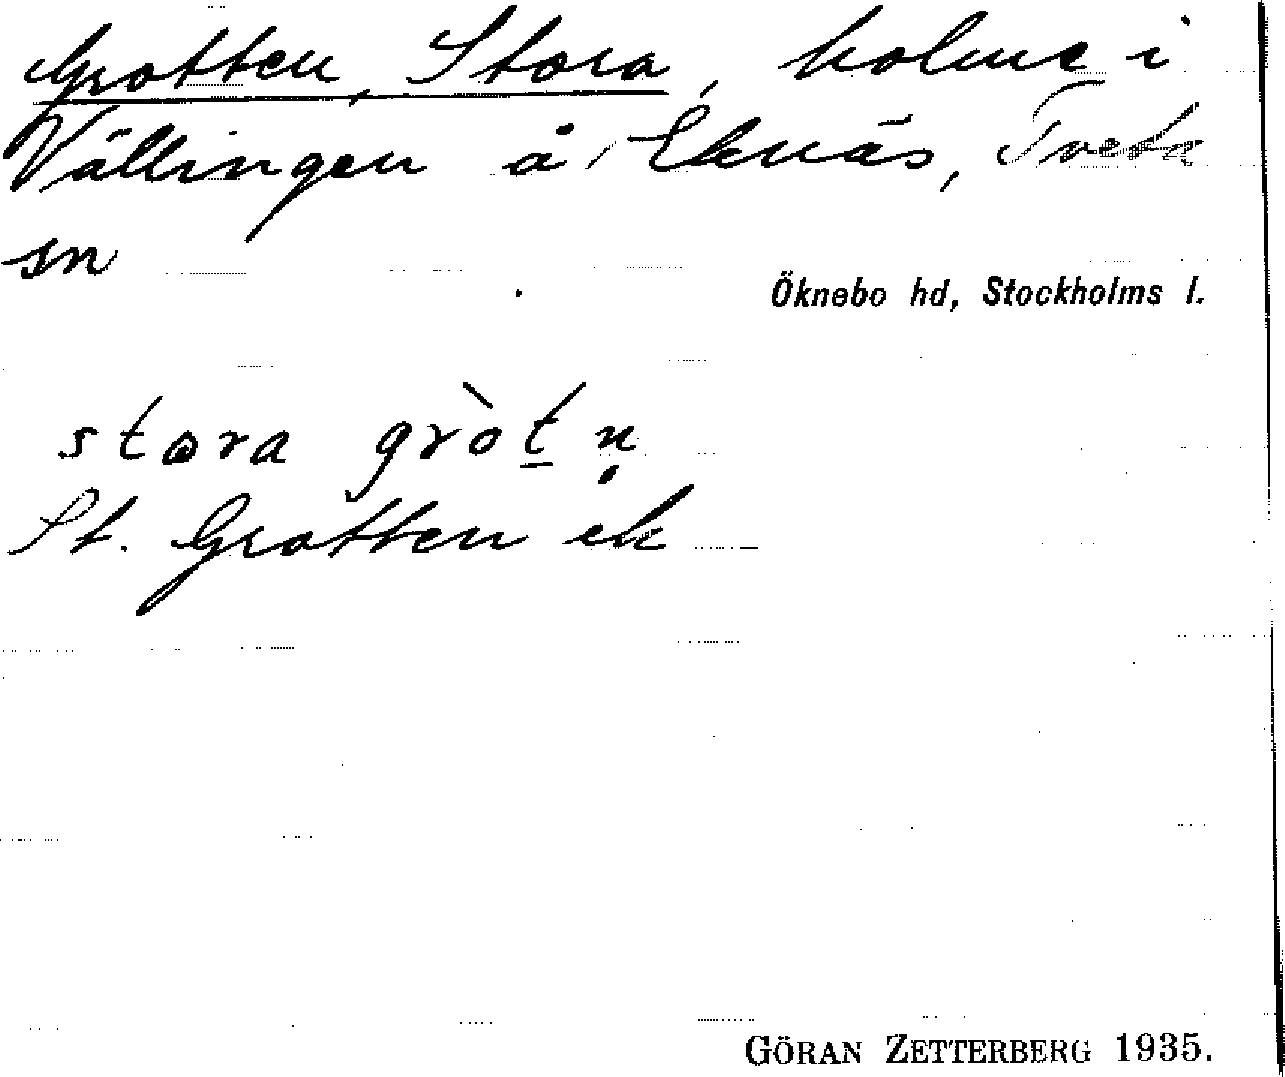 Grotten, Stora, holme i
Vällingen å Eknäs, Tveta
sn
Öknebo hd, Stockholms l.
stora gròt̲ṇ
St. Grotten ek
GÖRAN ZETTERBERG 1935.